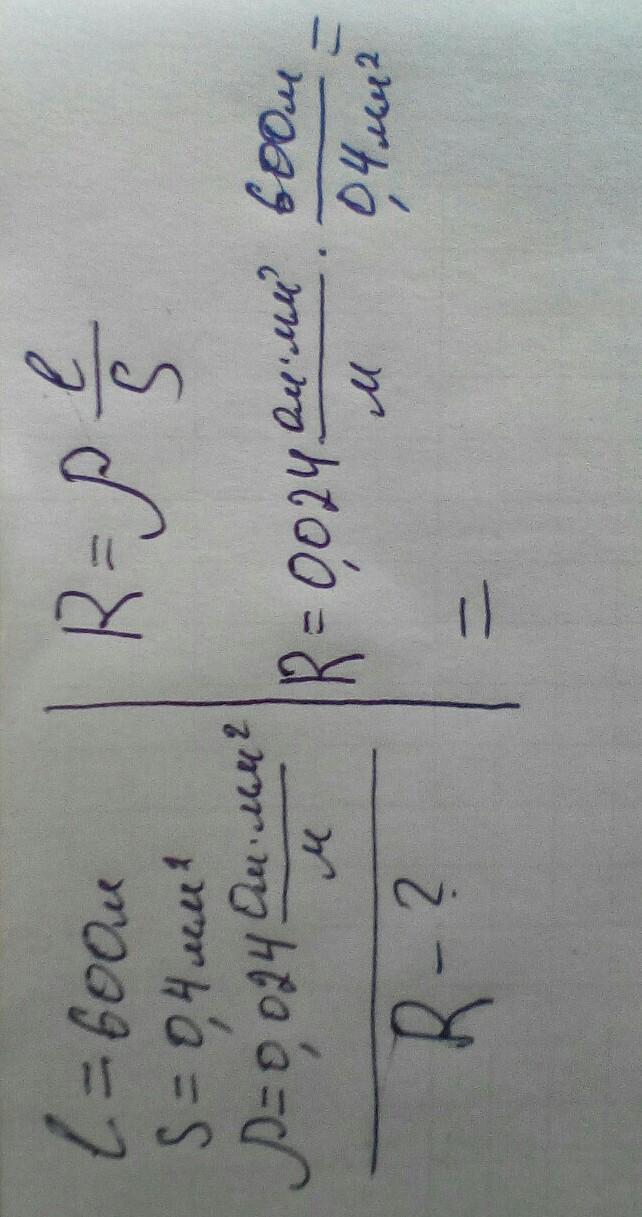 l = 600м
S = 0,4 мм²
ρ = 0,024 Ом·мм²/м
R - ?
R = ρ l/S
R = 0,024 Ом·мм²/м · 600м/0,4 мм² =
=